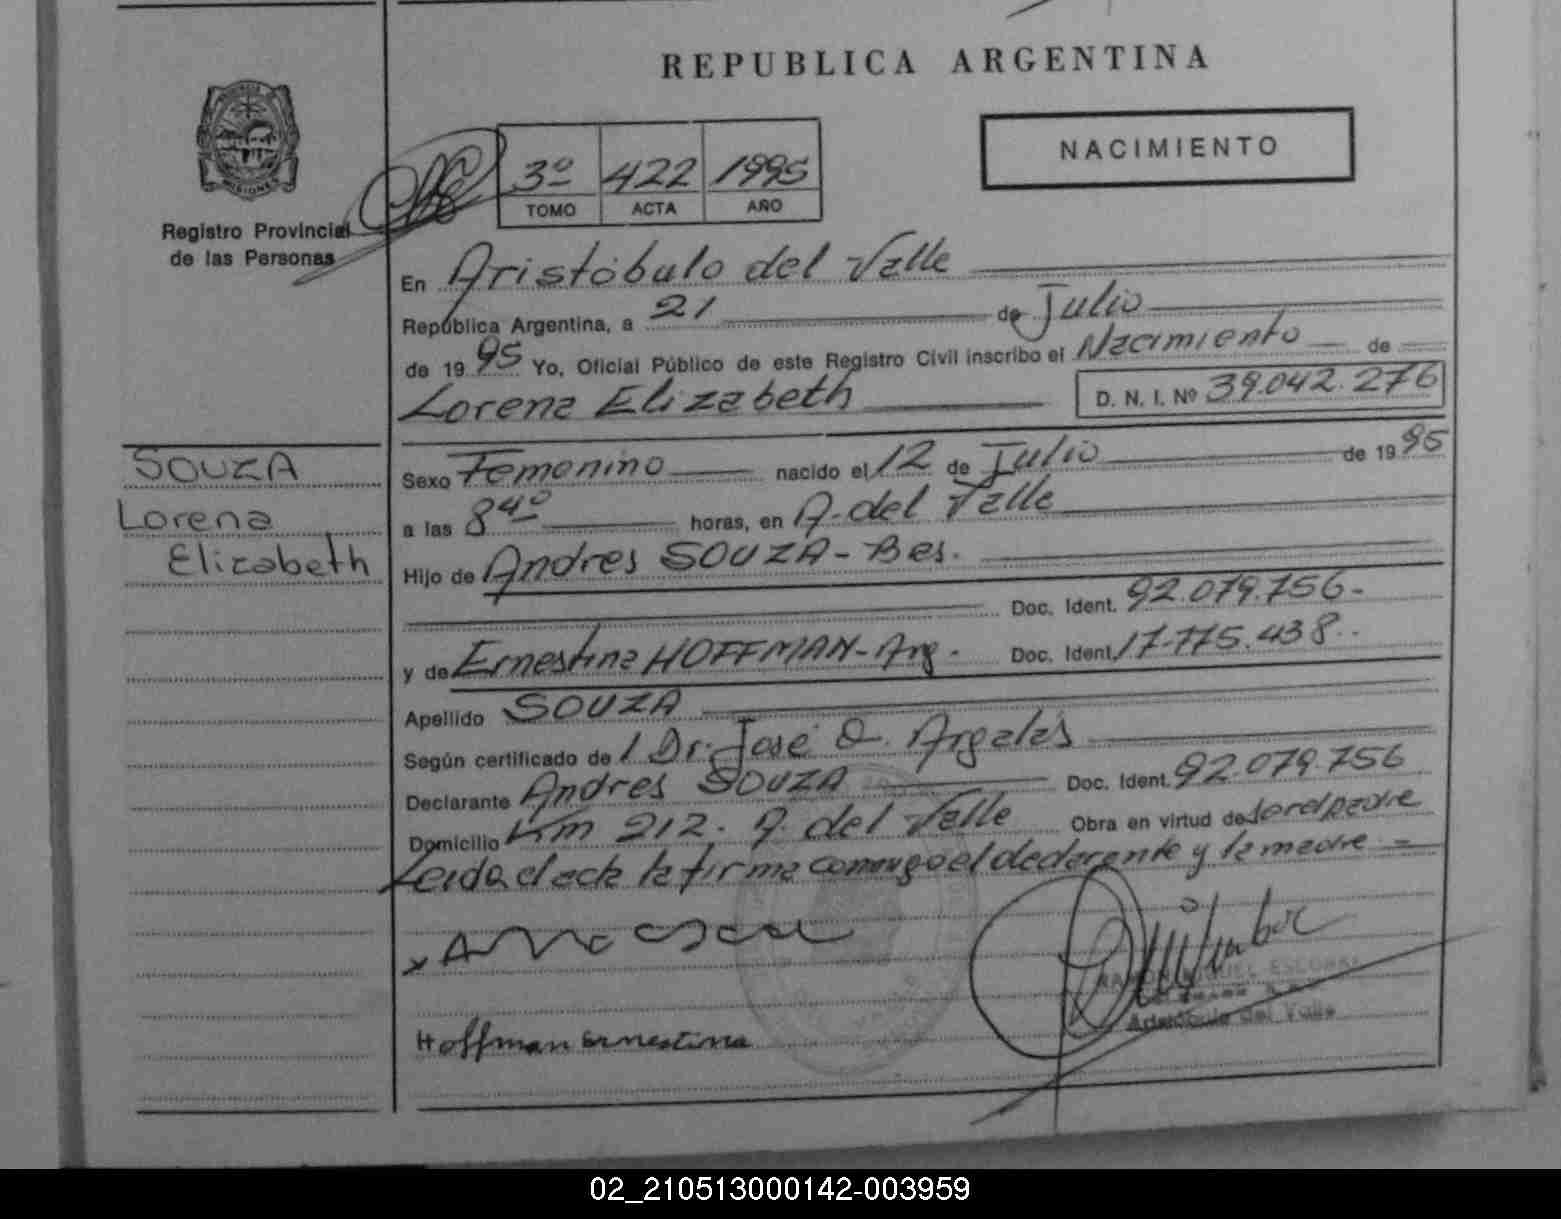 REPUBLICA ARGENTINA
NACIMIENTO
3º 422 1995
TOMO ACTA AÑO
MISIONES
Registro Provincial
de las Personas
En Aristóbulo del Valle
República Argentina, a 21 de Julio
de 1995 Yo, Oficial Público de este Registro Civil inscribo el Nacimiento de
Lorena Elizabeth D. N. I. Nº 39.042.276
SOUZA
Lorena
Elizabeth
Sexo Femenino nacido el 12 de Julio de 1995
a las 8 40 horas, en A. del Valle
Hijo de Andres SOUZA - Bes.
Doc. Ident. 92.079.756-
y de Ernestina HOFFMAN - Arg. Doc. Ident. 17.775.438..
Apellido SOUZA
Según certificado de / Dr. José O. Argalas
Declarante Andres SOUZA Doc. Ident. 92.079.756
Domicilio Km 212. A. del Valle Obra en virtud de ser el padre
Leida el acta la firma conmigo el declarante y la madre =
Hoffman Ernestina
RAMON MIGUEL ESCOBAR
Aristóbulo del Valle
02_210513000142-003959